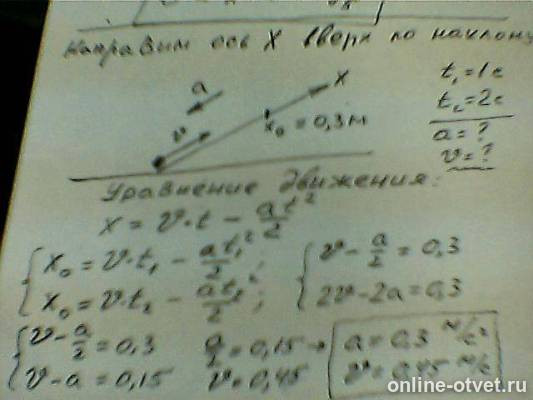 Направим ось X вверх по наклону
t₁ = 1с
t₂ = 2с
a = ?
v = ?
a
v
X
x₀ = 0,3м
Уравнение движения:
x = v·t - at²/2
x₀ = v·t₁ - at₁²/2;
x₀ = v·t₂ - at₂²/2;
v - a/2 = 0,3
2v - 2a = 0,3
v - a/2 = 0,3
v - a = 0,15
a/2 = 0,15 →
v = 0,45
a = 0,3 м/с²
v = 0,45 м/с
online-otvet.ru